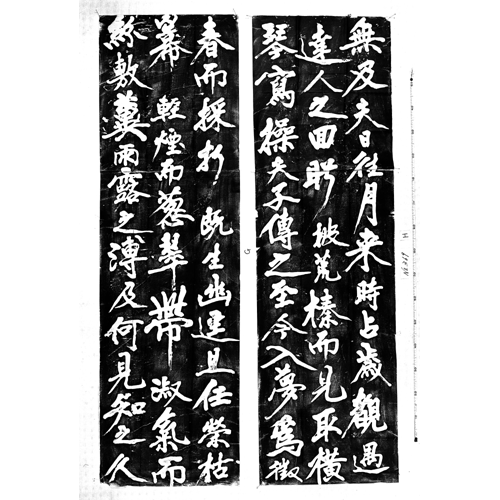 無及夫日往月来時占歲觀遇
達人之回眄披荒榛而見取橫
琴寫操夫子傳之至今入夢爲徵
春而採折既生幽逕且任榮枯
冪輕煙而葱翠帶淑氣而
紛敷冀雨露之溥及何見知之久